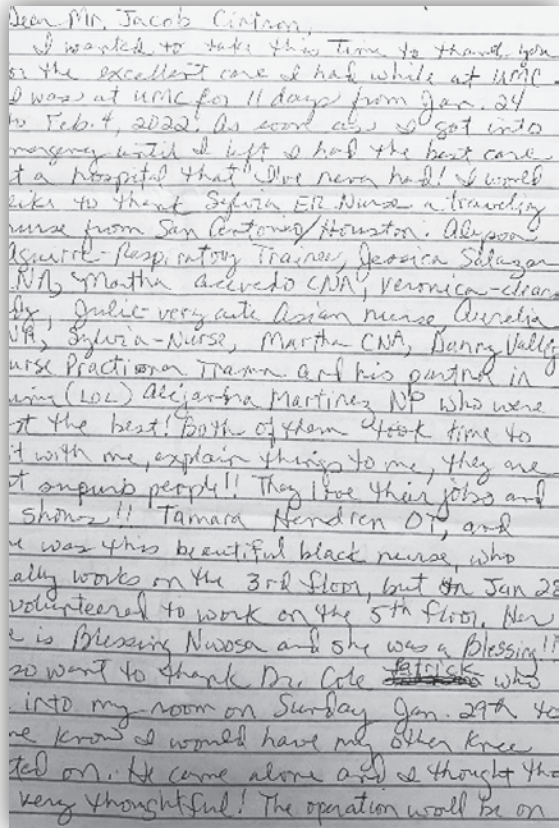 Dear Mr. Jacob Cintron,
I wanted to take this time to thank you
or the excellent care I had while at UMC.
I was at UMC for 11 days from Jan. 24
to Feb. 4, 2022. As soon as I got into
mergency until I left I had the best care
t a hospital that I've never had! I would
like to thank Sylvia ER Nurse a traveling
nurse from San Antonio/Houston. Alyssa
Aguirre-Respiratory Trainee, Jessica Salazar
NA, Martha Acevedo CNA, Veronica-clean
dy, Julie-very cute Asian nurse Aurelia
NA, Sylvia-Nurse, Martha CNA, Danny Valle
urse Practioner Trauma and his partner in
(LOL) Alejandra Martinez NP who were
st the best! Both of them took time to
it with me, explain things to me, they are
st supurb people!! They love their jobs and
shows!! Tamara Hendren OT, and
e was this beautiful black nurse, who
ally works on the 3rd floor, but on Jan 28
volunteered to work on the 5th floor. Her
e is Blessing Nwosa and she was a Blessing!!
so want to thank Dr. Cole Patrick who
into my room on Sunday Jan. 29th to
me know I would have my other knee
ted on. He came alone and I thought tha
very thoughtful! The operation would be on